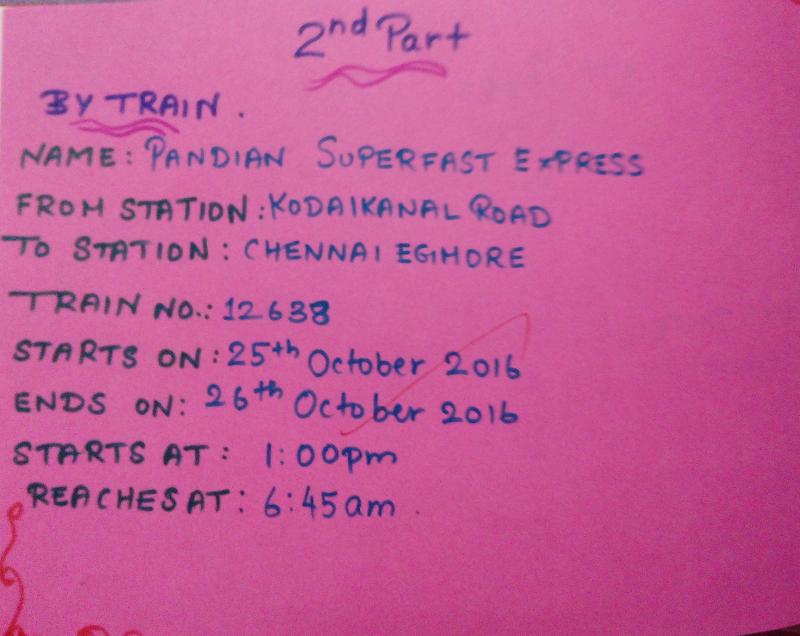 2nd Part
BY TRAIN.
NAME: PANDIAN SUPERFAST EXPRESS
FROM STATION: KODAIKANAL ROAD
TO STATION: CHENNAI EGMORE
TRAIN NO.: 12638
STARTS ON: 25th October 2016
ENDS ON: 26th October 2016
STARTS AT: 1:00pm
REACHES AT: 6:45am